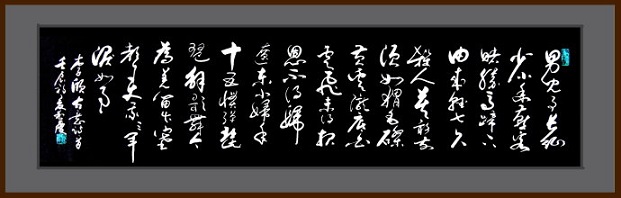 男儿事长征
少小幽燕客
赌勝馬蹄下
由来轻七尺
殺人莫敢前
须如猬毛磔
黄雲隴底白
雲飛未得报
恩不得歸
遼东小婦年
十五惯弹琵
琶解歌舞今
為羌笛出塞
声使我三军
泪如雨
李颀古意诗
壬辰